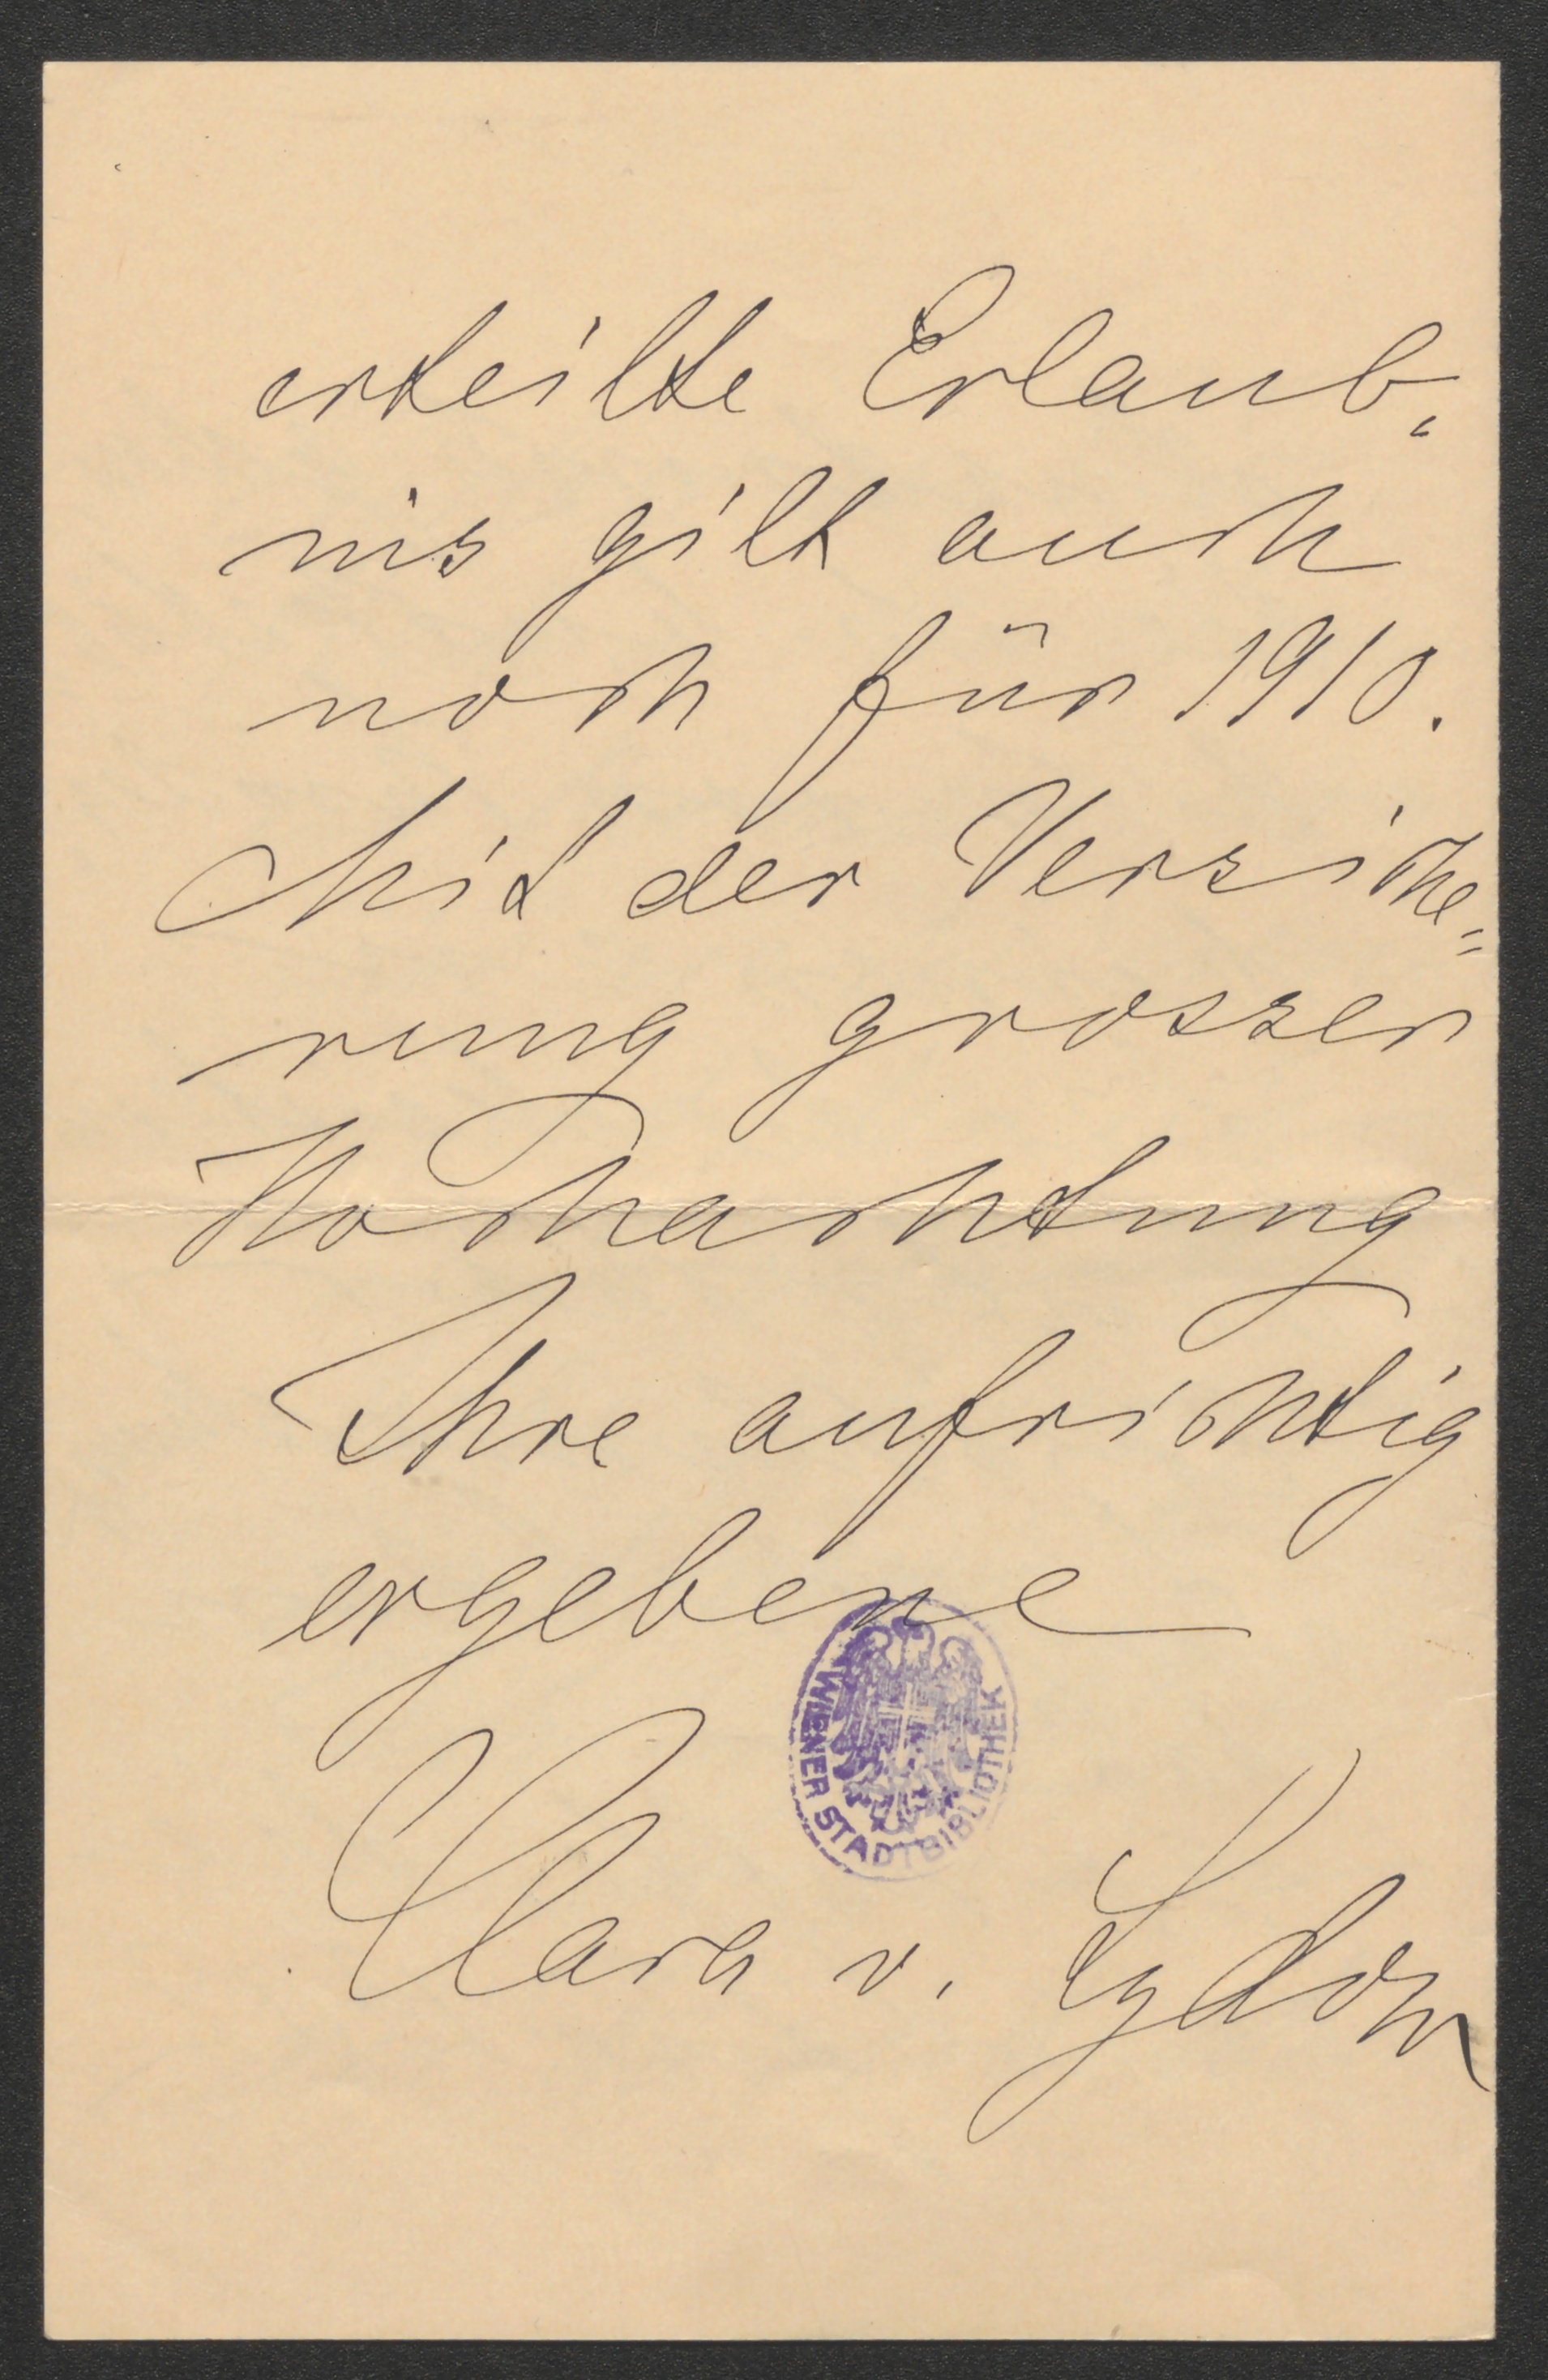 erteilte Erlaub-
nis gilt auch
noch für 1910.
Mit der Versiche=
rung grosser
Hochachtung
Ihre aufrichtig
ergebene
WIENER STADTBIBLIOTHEK
Clara v. Sydow